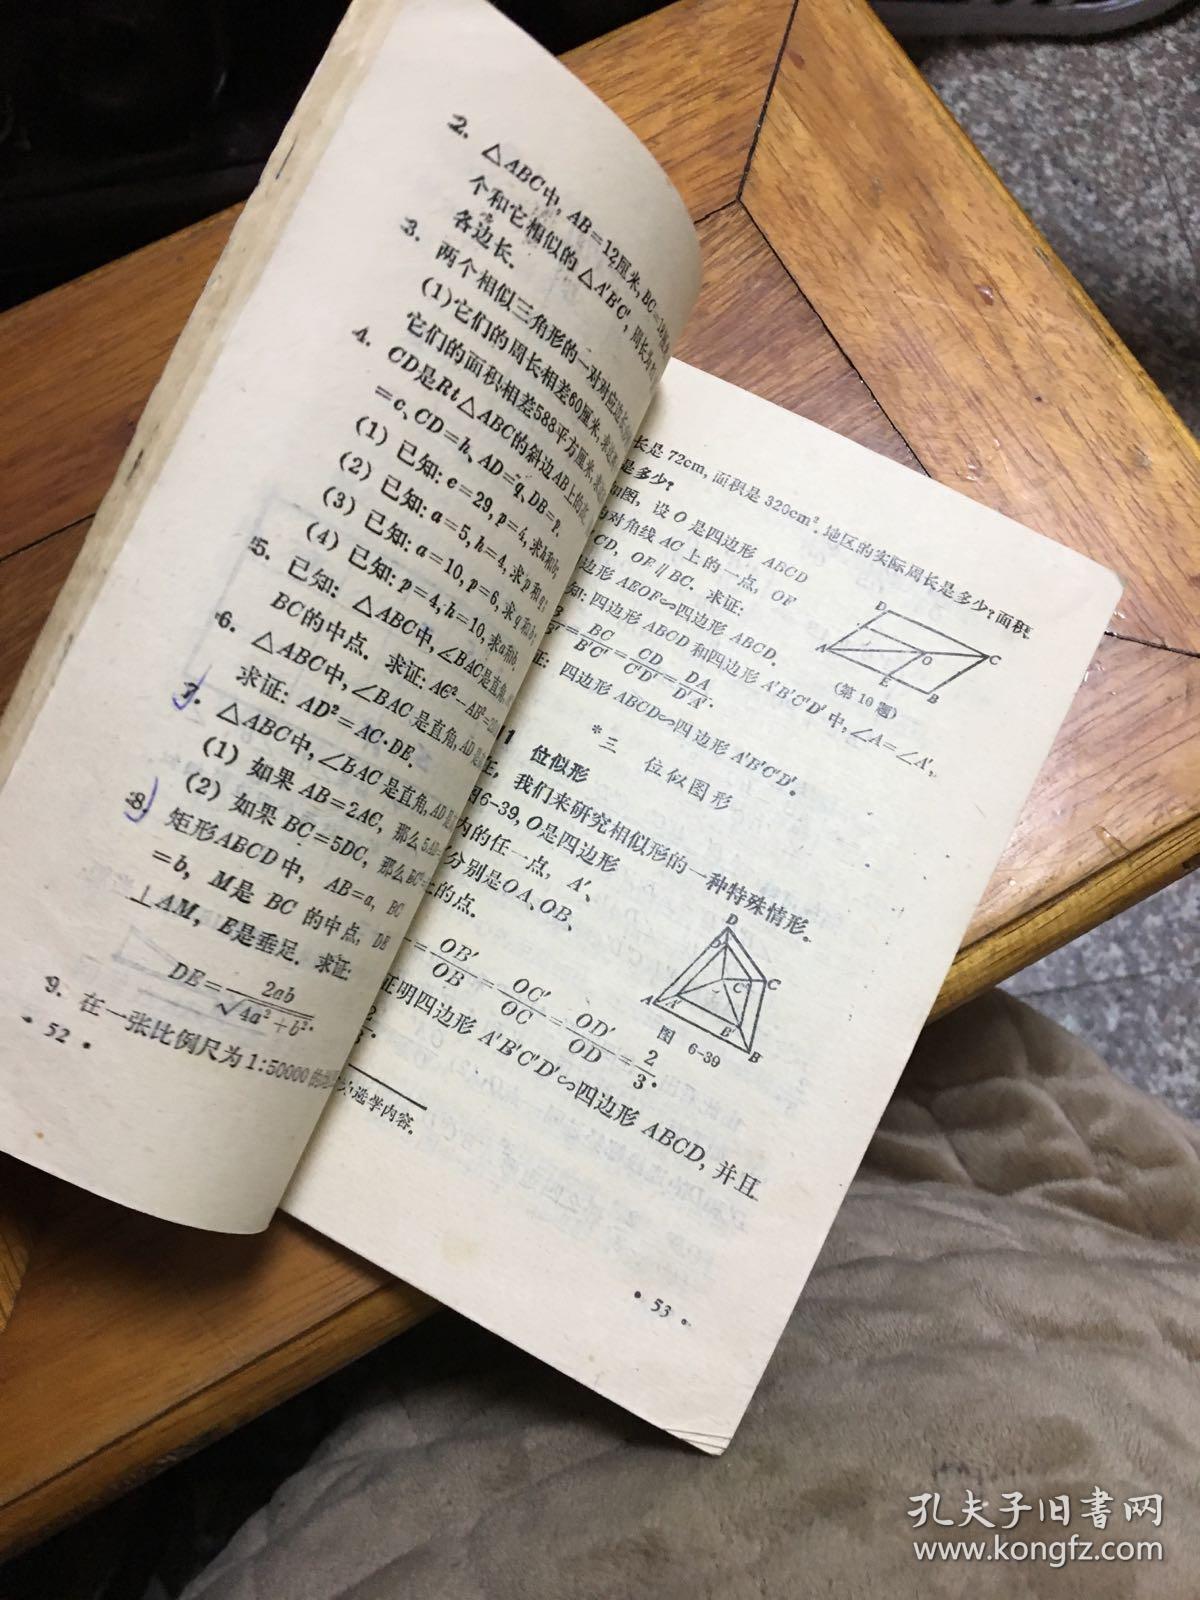 2. △ABC中, AB=12厘米, BC=18厘米
个和它相似的△A′B′C′, 周长为
各边长.
3. 两个相似三角形的一对对应边长
(1)它们的周长相差60厘米, 求这两
它们的面积相差588平方厘米, 求
4. CD是Rt△ABC的斜边AB上的高
=c、CD=h、AD=q、DB=p.
(1) 已知: c=29, p=4, 求h和b;
(2) 已知: a=5, h=4, 求p和q;
(3) 已知: a=10, p=6, 求q和b;
(4) 已知: p=4, h=10, 求a和b.
5. 已知: △ABC中, ∠BAC是直角,
BC的中点. 求证: AC²-AB²=2
6. △ABC中, ∠BAC是直角, AD是
求证: AD²=AC·DE.
7. △ABC中, ∠BAC是直角, AD是
(1) 如果AB=2AC, 那么5AD=
(2) 如果BC=5DC, 那么BC²=
8. 矩形ABCD中, AB=a, BC
=b, M是BC的中点, DE
⊥AM, E是垂足. 求证:
DE=2ab/√4a²+b².
9. 在一张比例尺为1:50000的地
• 52 •
长是72cm, 面积是320cm². 地区的实际周长是多少? 面积
是多少?
如图, 设O是四边形ABCD
对角线AC上的一点, OF
CD, OE∥BC. 求证:
边形AEOF∽四边形ABCD.
知: 四边形ABCD和四边形A′B′C′D′中, ∠A=∠A′,
=BC/B′C′=CD/C′D′=DA/D′A′.
证: 四边形ABCD∽四边形A′B′C′D′.
D
A
O
C
E
B
(第10题)
*三 位似图形
1 位似形
我们来研究相似形的一种特殊情形.
图6-39, O是四边形
内的任一点, A′、
分别是OA、OB、
上的点.
=OB′/OB=OC′/OC=OD′/OD=2/3.
证明四边形A′B′C′D′∽四边形ABCD, 并且
D
D′
C′
C
A
A′
B′
B
图 6-39
选学内容.
• 53 •
孔夫子旧书网
www.kongfz.com